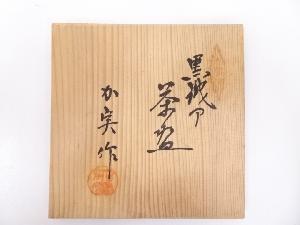 黒織部
茶盌
加実作